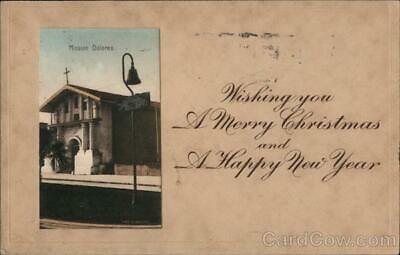 Mission Dolores.
Wishing you
A Merry Christmas
and
A Happy New Year
CardCow.com